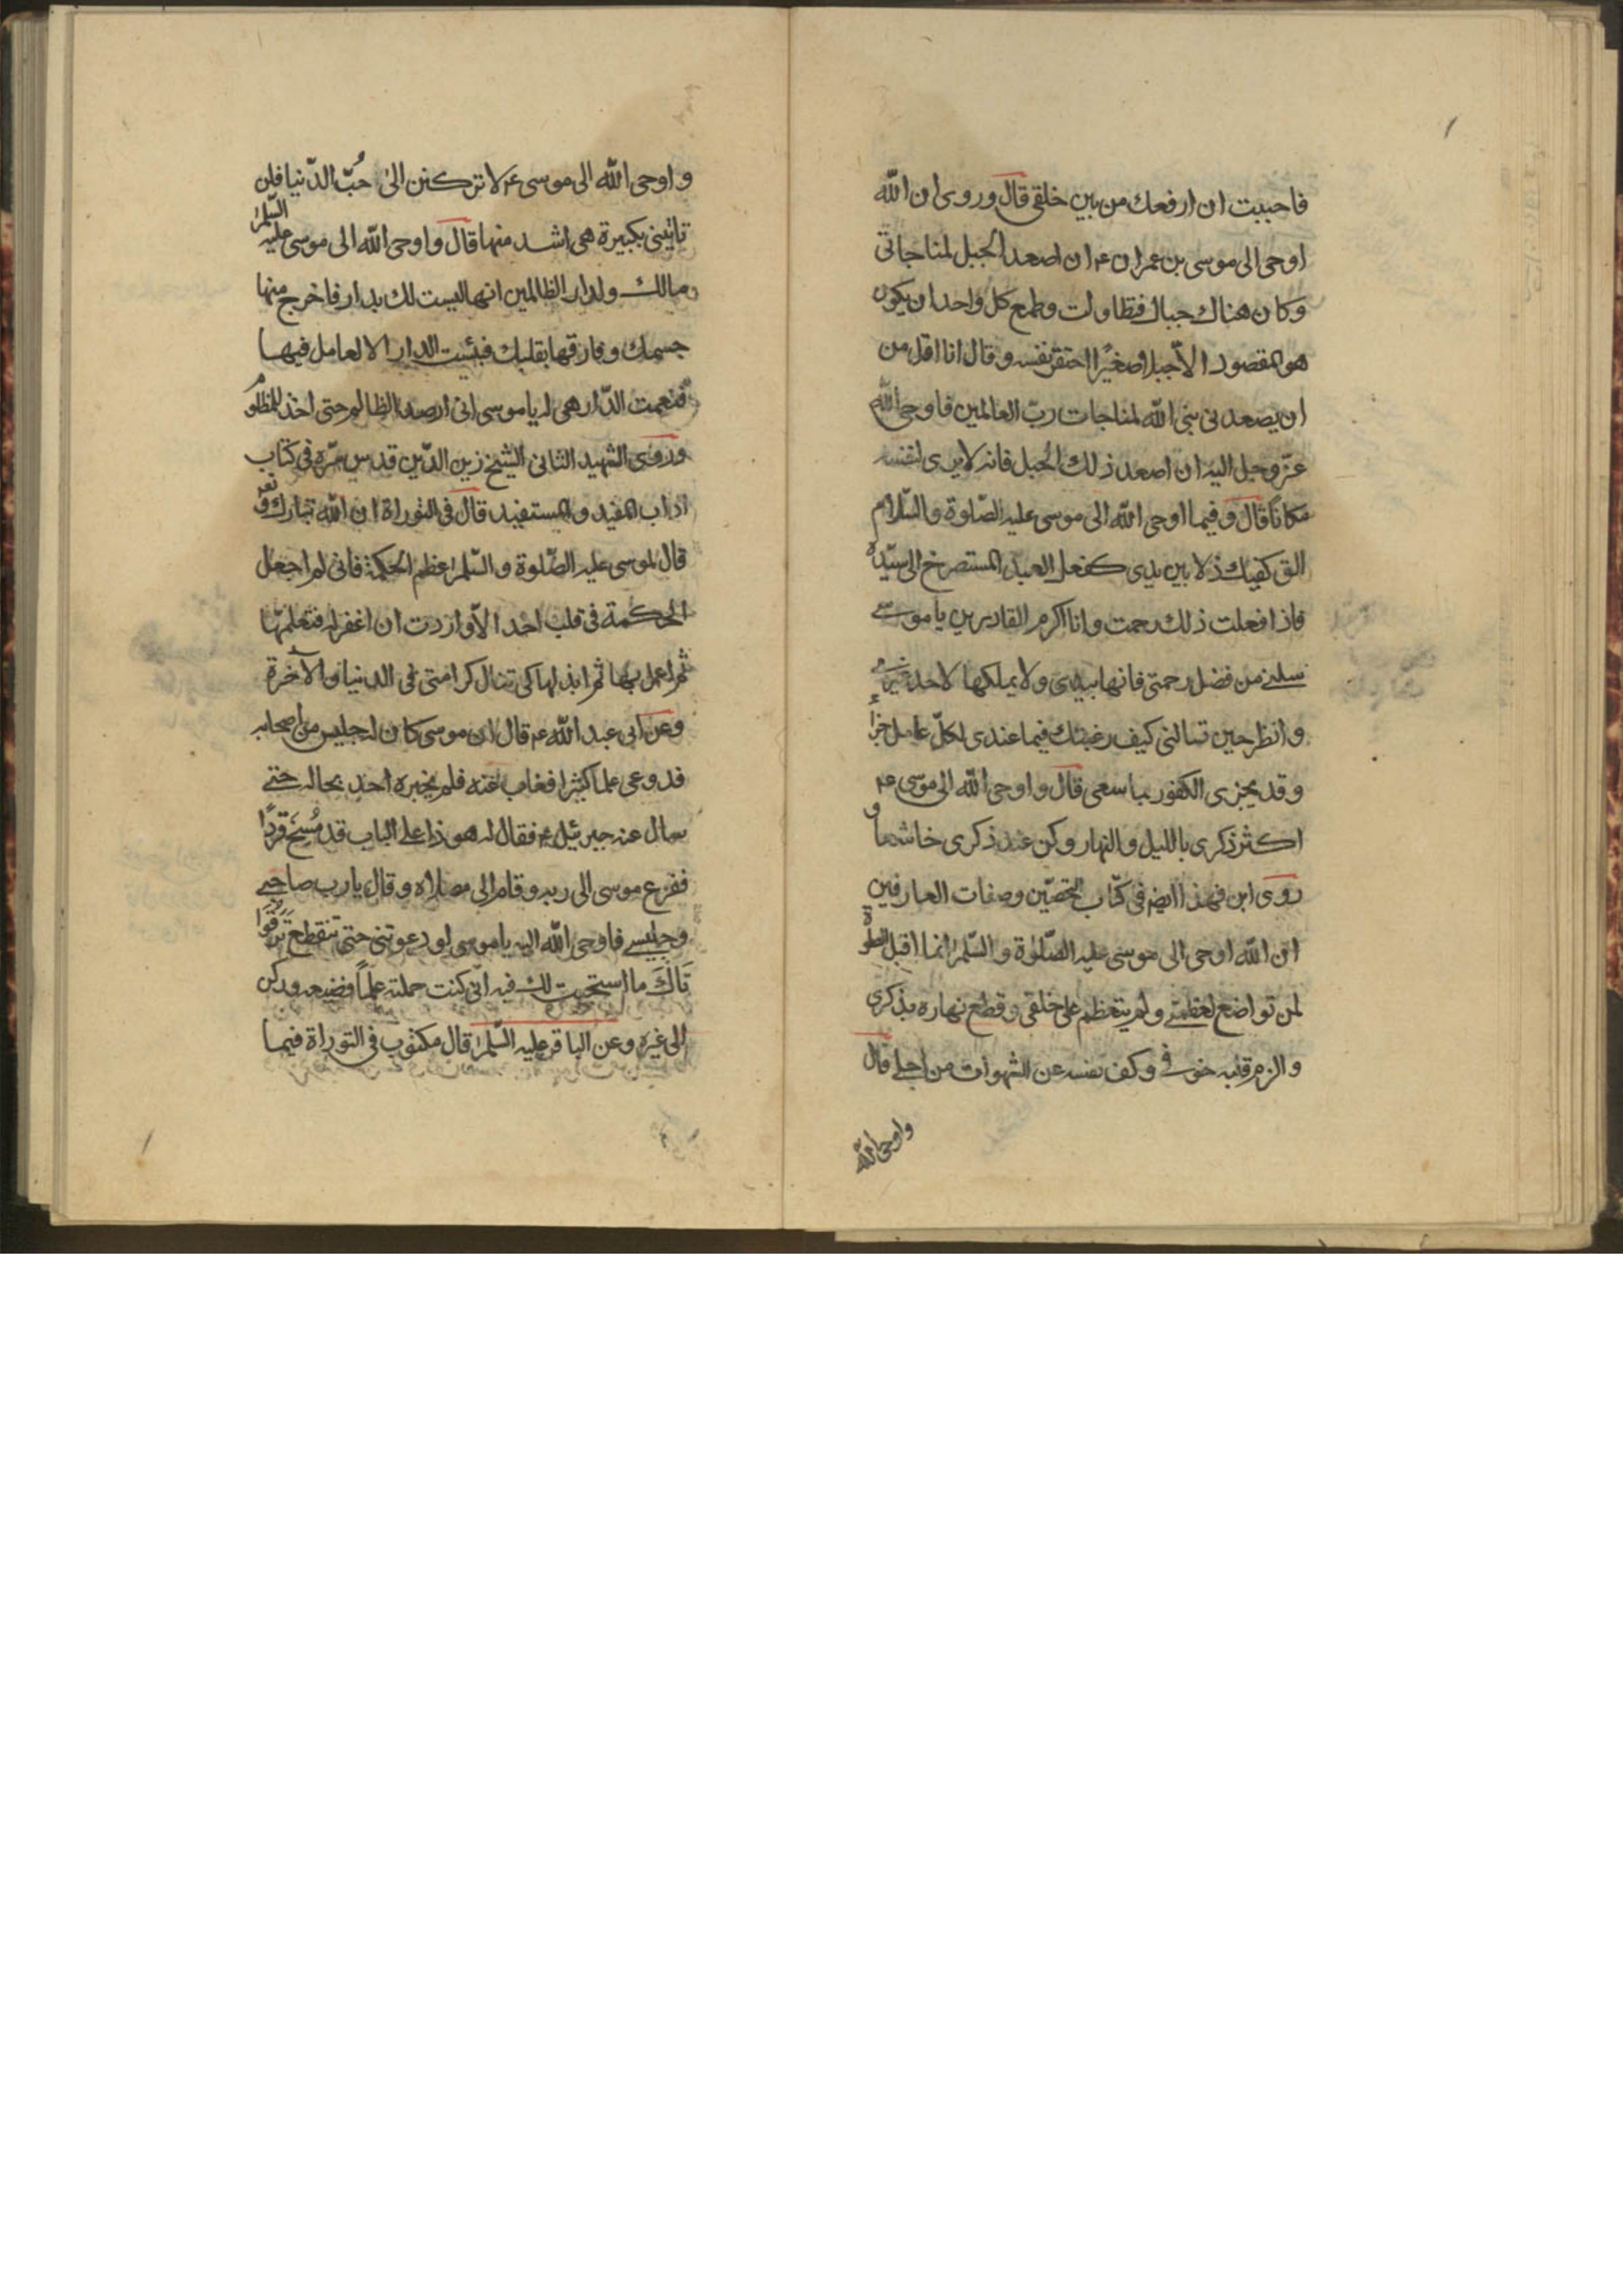 فاحببت ان ارفعك من بين خلقى قال وروى ان الله
اوحى الى موسى بن عمران ع ان اصعد الجبل لمناجاتى
وكان هناك جبال فتطاولت وطمع كل واحد ان يكون
هو المقصود الا جبلا صغيرا احتقر نفسه وقال انا اقل من
ان يصعدنى نبى الله لمناجات رب العالمين فاوحى الله
عز وجل اليه ان اصعد ذلك الجبل فانه لا يرى لنفسه
مكانا قال وفيما اوحى الله الى موسى عليه الصلوة والسلام
الق كفيك ذلا بين يدى كفعل العبد المستصرخ الى سيده
فاذا فعلت ذلك رحمت وانا اكرم القادرين يا موسى
سلنى من فضل رحمتى فانها بيدى ولا يملكها لاحد غيرى
وانظر حين تسالنى كيف رغبتك فيما عندى لكل عامل جزاء
وقد يجزى الكفور بما سعى قال واوحى الله الى موسى ع
اكثر ذكرى بالليل والنهار وكن عند ذكرى خاشعا و
روى ابن فهد ايضا فى كتاب التحصين وصفات العارفين
ان الله اوحى الى موسى عليه الصلوة والسلم انما اقبل الصلوة
لمن تواضع لعظمتى ولم يتعظم على خلقى وقطع نهاره بذكرى
والزم قلبه خوفى وكف نفسه عن الشهوات من اجلى قال
واوحى الله
واوحى الله الى موسى ع لا تركنن الى حُبّ الدّنيا فلن
تاتينى بكبيرة هى اشد منها قال واوحى الله الى موسى عليه السلم
مالك ولدار الظالمين انها ليست لك بدار فاخرج منها
جسمك وفارقها بقلبك فبئست الدار الا لعامل فيها
فنعمت الدّار هى له يا موسى انى ارصد الظالم حتى اخذ للمظلوم
وروى الشهيد الثانى الشيخ زين الدّين قدس سرّه فى كتاب
اداب المفيد والمستفيد قال فى التوراة ان الله تبارك وتعـ
قال لموسى عليه الصّلوة والسّلم عظم الحكمة فانى لم اجعل
الحكمة فى قلب احد الّا واردت ان اغفر له فتعلمها
ثم اعمل بها ثم ابذلها كى تنال كرامتى فى الدنيا والآخرة
وعن ابى عبد الله ع قال ان موسى كان له جليس من اصحابه
قد وعى علما كثيرا فغاب عنه فلم يخبره احد بحاله حتى
سال عنه جبرئيل ع فقال له هو ذا على الباب قد مُسِخَ قردًا
ففزع موسى الى ربه وقام الى مصلاه وقال يا رب صاحبى
وجليسى فاوحى الله اليه يا موسى لو دعوتنى حتى تنقطع ترقوا
تَاكَ ما استجبت لك فيه انّى كنت حملته علماً فضيعه وركن
الى غيره وعن الباقر عليه السّلم قال مكتوب فى التوراة فيما